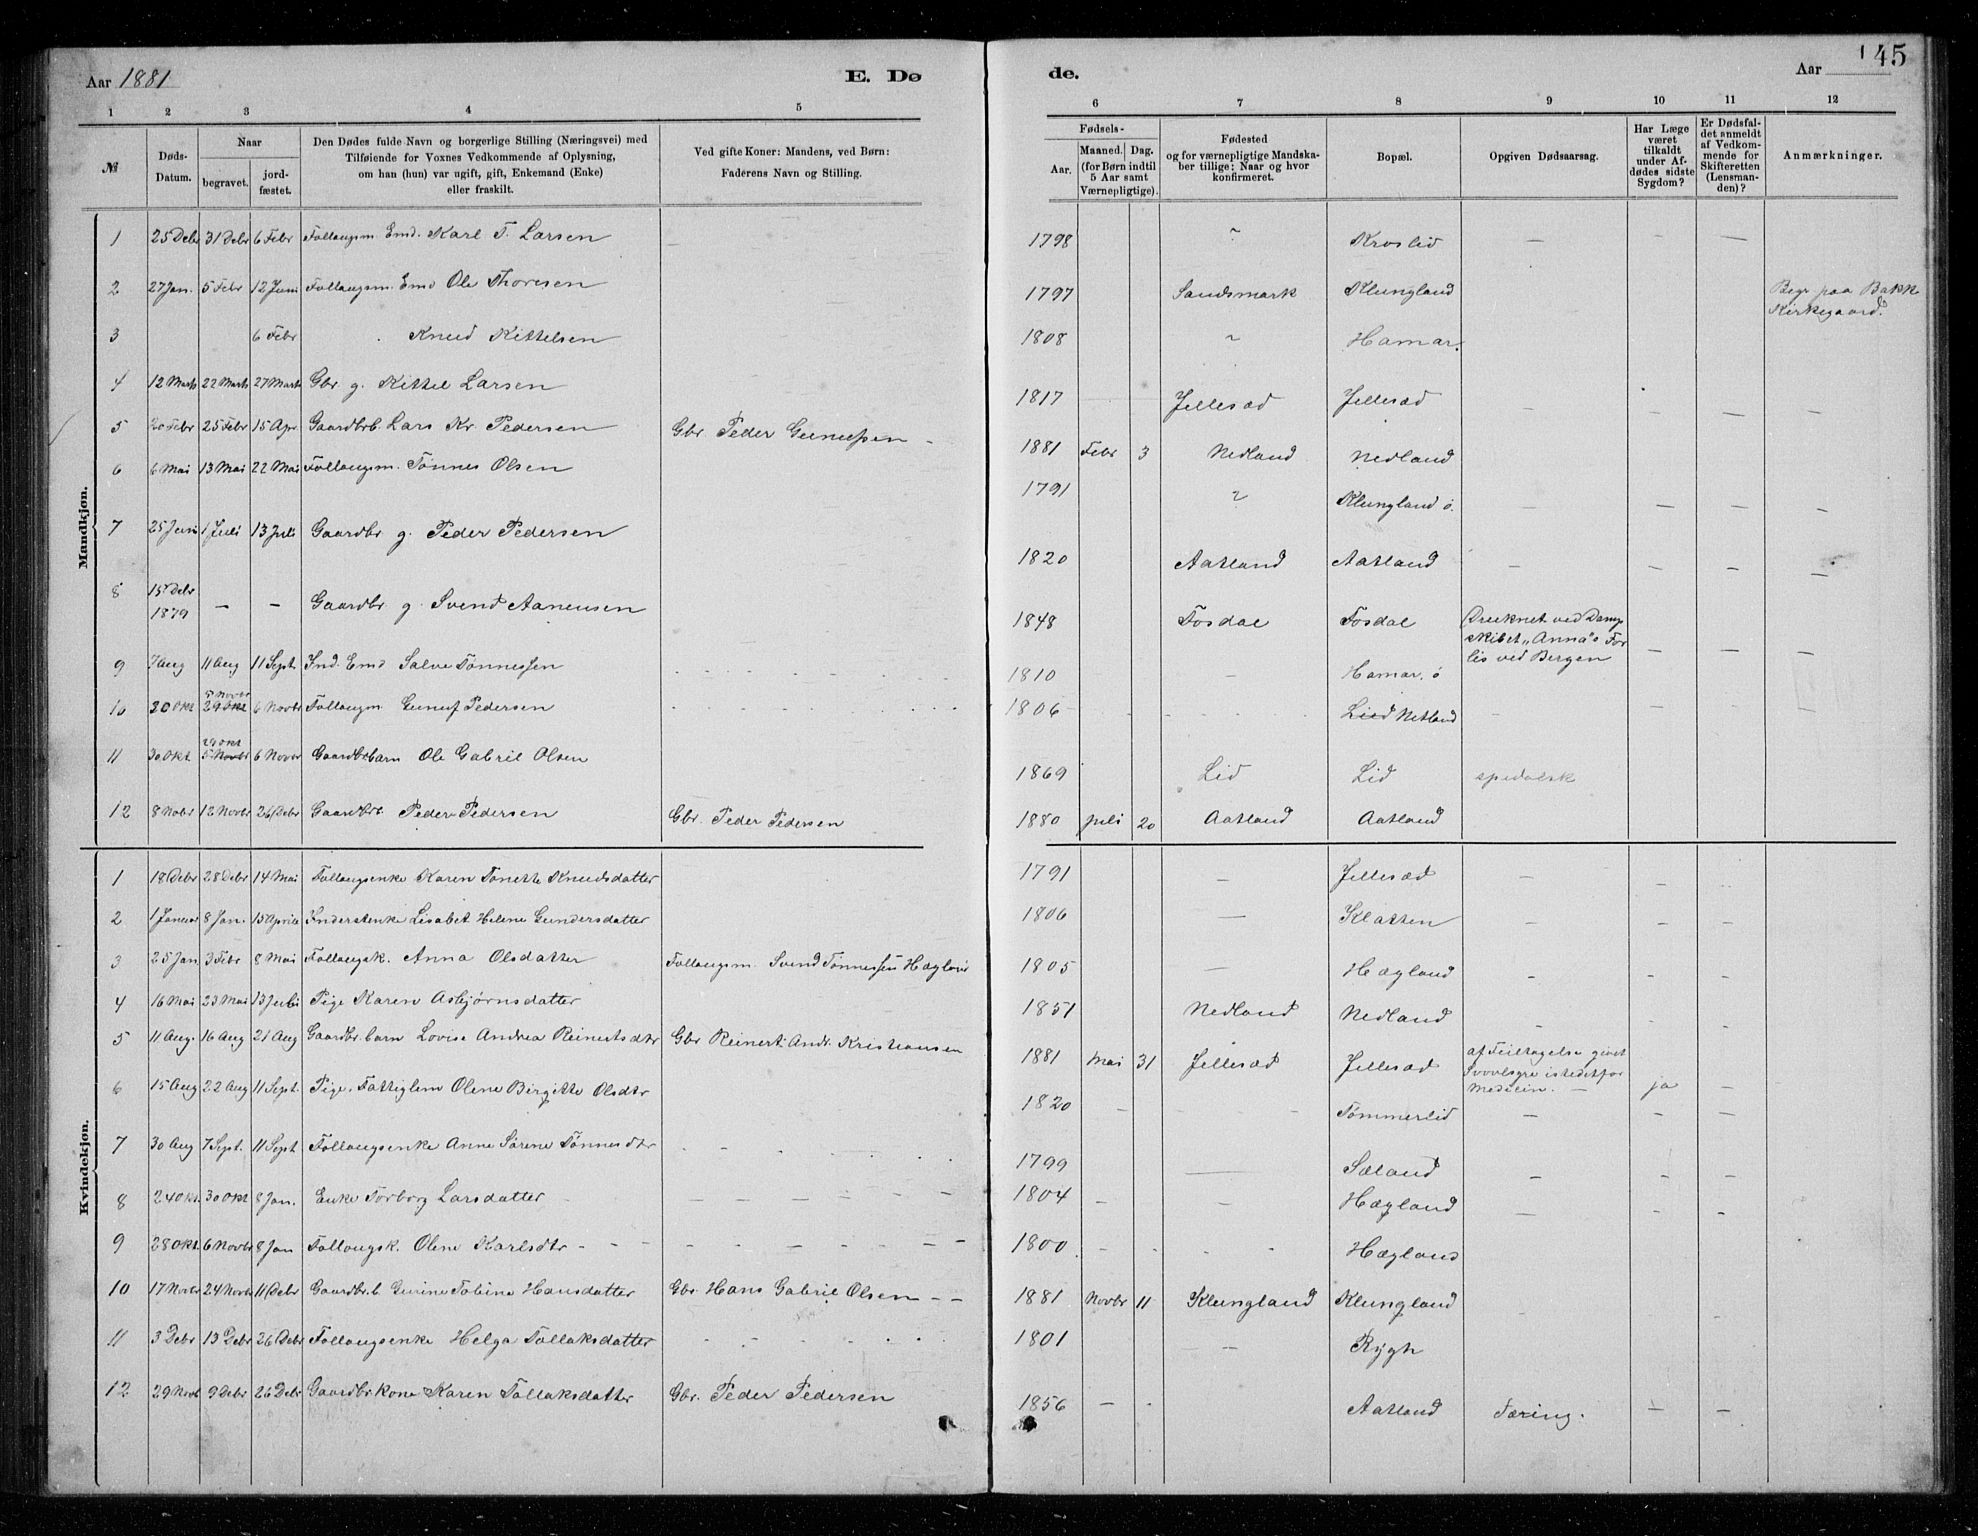 Aar 1881 E. Dø
de. Aar 145
1 2 3 4 5 6 7 8 9 10 11 12
№
Døds-Datum.
Naar
begravet.
jordfæstet.
Den Dødes fulde Navn og borgerlige Stilling (Næringsvei) med
Tilføiende for Voxnes Vedkommende af Oplysning,
om han (hun) var ugift, gift, Enkemand (Enke)
eller fraskilt.
Ved gifte Koner: Mandens, ved Børn:
Faderens Navn og Stilling.
Fødsels-
Aar. Maaned. Dag.
(for Børn indtil
5 Aar samt
Værnepligtige).
Fødested
og for værnepligtige Mandska-
ber tillige: Naar og hvor
konfirmeret.
Bopæl.
Opgiven Dødsaarsag.
Har Læge
været
tilkaldt
under Af-
dødes sidste
Sygdom?
Er Dødsfal-
det anmeldt
af Vedkom-
mende for
Skifteretten
(Lensman-
den)?
Anmærkninger.
Mandkjøn.
1 25 Debr 31 Debr 6 Febr Follaugsm. Emd. Karl T. Larsen — 1798 " Kroslid — — —
2 27 Jan. 5 Febr 12 Juni Follaugsm. Emd Ole Thoresen 1797 Sandsmark Klungland Begr paa Bakke
Kirkegaard.
3 6 Febr Knud Kittelsen 1808 " Hamar.
4 12 Marts 22 Marts 27 Marts Gbr g. Kittel Larsen 1817 Jellesæd Jellesæd — — — —
5 20 Febr 25 Febr 15 Apr. Gaardbrb. Lars Kr. Pedersen Gbr. Peder Gunufsen 1881 Febr 3 Nedland Nedland
6 6 Mai 13 Mai 22 Mai Follaugsm. Tönnes Olsen 1791 " Klungland ö. — — — —
7 25 Juni 1 Juli 13 Juli Gaardbr g. Peder Pedersen 1820 Aatland Aatland — — — —
8 15 Debr
1879 — — Gaardbr g. Svend Aanensen 1848 Fosdal Fosdal Druknet ved Damp
skibet „Anna"s For
lis ved Bergen — — —
9 7 Aug 11 Aug 11 Sept. Ind. Emd Salve Tönnessen 1810 — Hamar. ö
10 30 Okt 5 Novbr 29 Okt 6 Novbr Follaugsm Gunuf Pedersen 1806 Lied Netland
11 20 Okt 29 Okt 5 Novbr 6 Novbr Gaardbrbarn Ole Gabriel Olsen 1869 Lid Lid spedalsk
12 8 Nobr 12 Novbr 26 Debr Gaardbrb Peder Pedersen Gbr. Peder Pedersen 1880 juli 20 Aatland Aatland
Kvindekjøn.
1 18 Debr 28 Debr 14 Mai Follaugsenke Karen Tonette Knudsdatter 1791 — Jellesæd — — —
2 1 Januar 8 Jan. 15 Aprile Inderstenke Lisabet Helene Gundersdatter 1806 — Klatten — — —
3 25 Jan 3 Febr 8 Mai Follaugsk. Anna Olsdatter Follaugsm. Svend Tönnessen Hægland 1805 — Hægland — — —
4 16 Mai 23 Mai 13 Juli Pige Karen Asbjørnsdatter 1851 Nedland Nedland — — —
5 11 Aug. 16 Aug 21 Aug Gaardbr.barn Lovise Andrea Reinertsdtr Gbr Reinert Andr. Kristiansen 1881 Mai 31 Jellesæd Jellesæd af Feiltagelse givet
Svovlsyre istedetfor
Medicin. — ja —
6 15 Aug 22 Aug 11 Sept. Pige. Fattiglem Olene Birgitte Olsdtr 1820 — — Tömmerlid — — —
7 30 Aug 7 Sept. 11 Sept Follaugsenke Anne Sörine Tönnesdtr 1799 — Sæland — — —
8 24 Okt. 30 Okt 8 Jan. Enke Torborg Larsdatter 1804 — — Hægland — — —
9 28 Okt. 6 Novbr 8 Jan Follaugsk. Olene Karlsdtr 1800 Hægland
10 17 Novbr 24 Novbr 11 Debr Gaardbr.b Gurine Tobine Hansdatter Gbr. Hans Gabriel Olsen — — 1881 Novbr 11 Klungland Klungland
11 3 Debr 13 Debr 26 Debr Follaugsenke Helga Tollaksdatter 1801 — Rygh
12 29 Novb 9 Debr 26 Debr Gaardbrkone Karen Tollaksdatter Gbr. Peder Pedersen 1856 — Aatland Tæring. — —